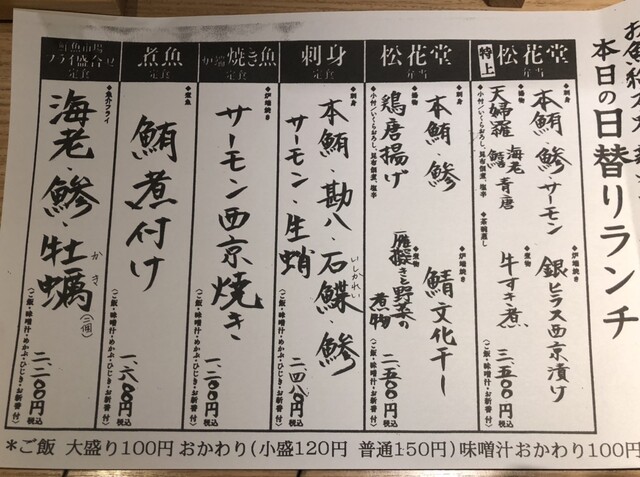 本日の日替りランチ
特上 松花堂 弁当
◆刺身
本鮪、鯵、サーモン
◆揚物
天婦羅 海老 鱚 青唐
◆小付/いくらおろし、昆布佃煮、塩辛
◆茶碗蒸し
◆炉端焼き
銀ヒラス西京漬け
◆煮物
牛すき煮
(ご飯・味噌汁・めかぶ・ひじき・お新香 付)
三、五〇〇円 税込
松花堂 弁当
◆刺身
本鮪、鯵
◆揚物
鶏唐揚げ
◆小付/いくらおろし、昆布佃煮、塩辛
◆炉端焼き
鯖文化干し
◆煮物
雁擬きと野菜の煮物
(ご飯・味噌汁・めかぶ・ひじき・お新香 付)
二、五〇〇円 税込
刺身 定食
◆刺身
本鮪、勘八、石鰈、鯵
いしかれい
サーモン、生蛸
(ご飯・味噌汁・めかぶ・ひじき・お新香 付)
二、四八〇円 税込
焼き魚 定食
◆炉端焼き
サーモン西京焼き
(ご飯・味噌汁・めかぶ・ひじき・お新香 付)
一、二〇〇円 税込
煮魚 定食
◆煮魚
鮪煮付け
(ご飯・味噌汁・めかぶ・ひじき・お新香 付)
一、六〇〇円 税込
鮮魚市場 フライ盛合せ 定食
◆魚介フライ
海老、鯵、牡蠣(三個)
かき
(ご飯・味噌汁・めかぶ・ひじき・お新香 付)
二、二〇〇円 税込
*ご飯 大盛り100円 おかわり(小盛120円 普通150円)味噌汁おかわり100円